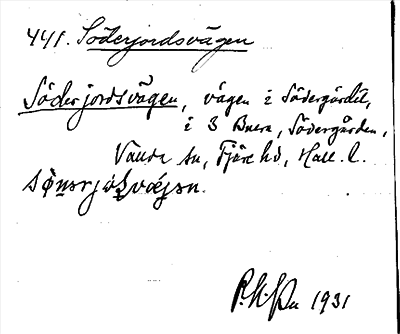 441. Söderjordsvägen
Söderjordsvägen, vägen i Södergärdet,
i 3 Buera, Södergården,
Valda sn, Fjäre hd, Hall. l.
1931